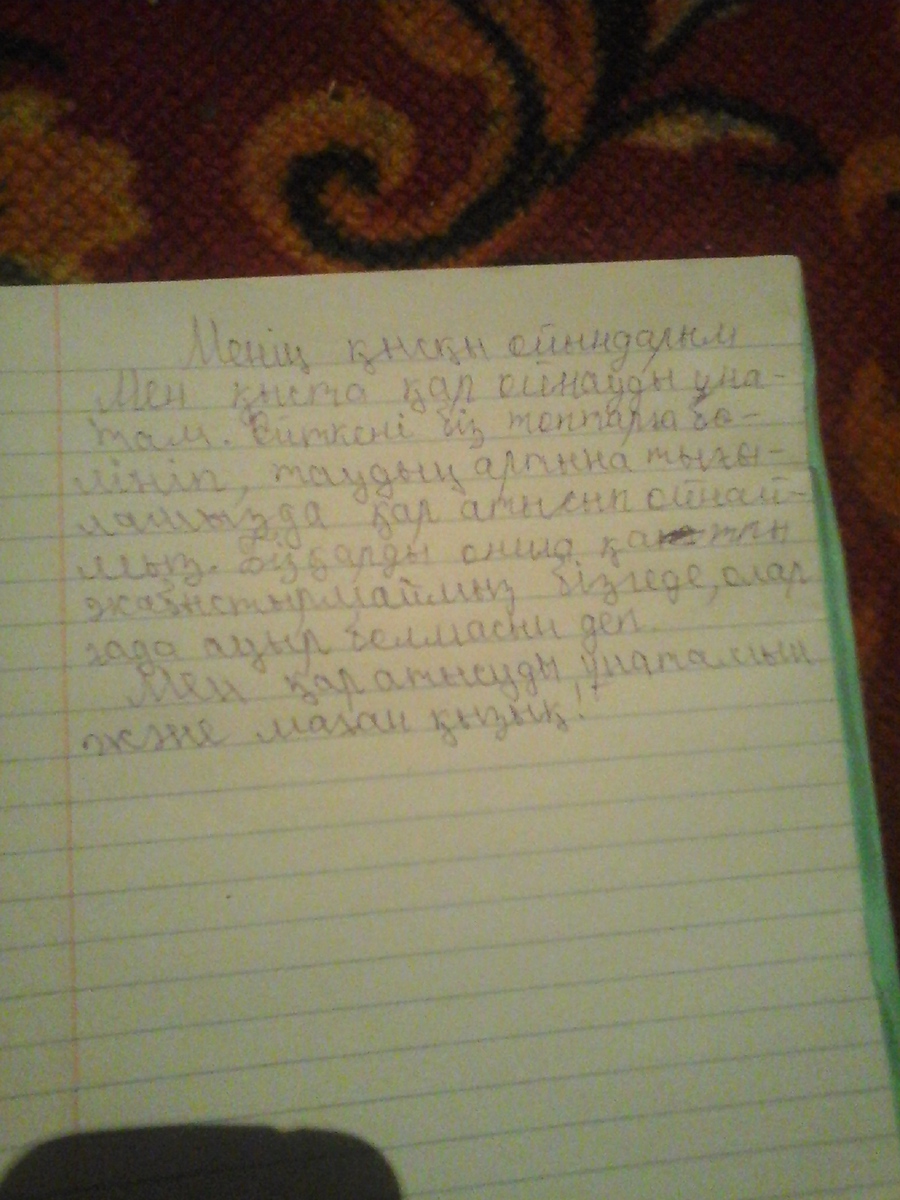 Менің қысқы ойындарым
Мен қыста қар ойнауды ұна-
там. Өиткені біз топтарға бө-
лініп, таудың артына тығы-
ламызда қар атысып ойнай-
мыз. Біз қарды онша қатты
жабыстырмаймыз бізгеде, олар
ғада ауыр болмасын деп.
Мен қар атысуды ұнатамын
жже маған қызық!